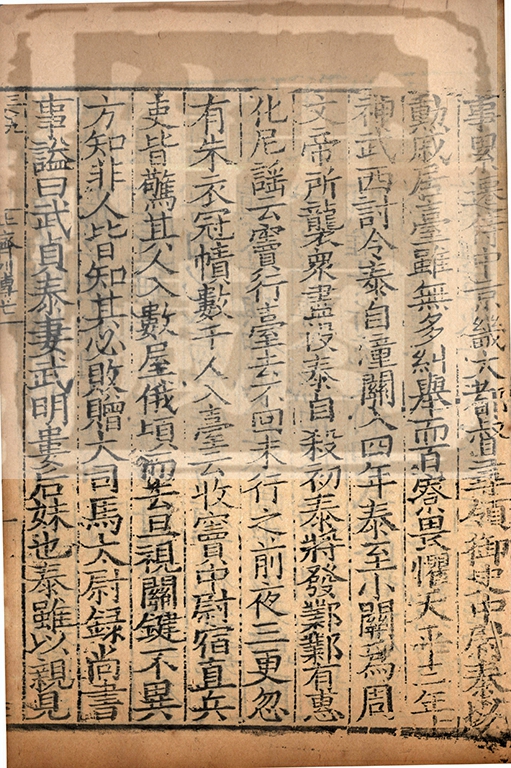 事累遷侍中京畿大都督尋領御史中尉泰以
勲戚居臺雖無多糾舉而百寮畏懼天平三年
神武西討令泰自潼關入四年泰至小關為周
文帝所襲衆盡没泰自殺初泰將發鄴鄴有惠
化尼謡云竇行臺去不回未行之前夜三更忽
有朱衣冠幘數千人入臺云收竇中尉宿直兵
吏皆驚其人入數屋俄頃而去旦視關鍵不異
方知非人皆知其必敗贈大司馬太尉録尚書
事謚曰武貞泰妻武明婁后妹也泰雖以親見